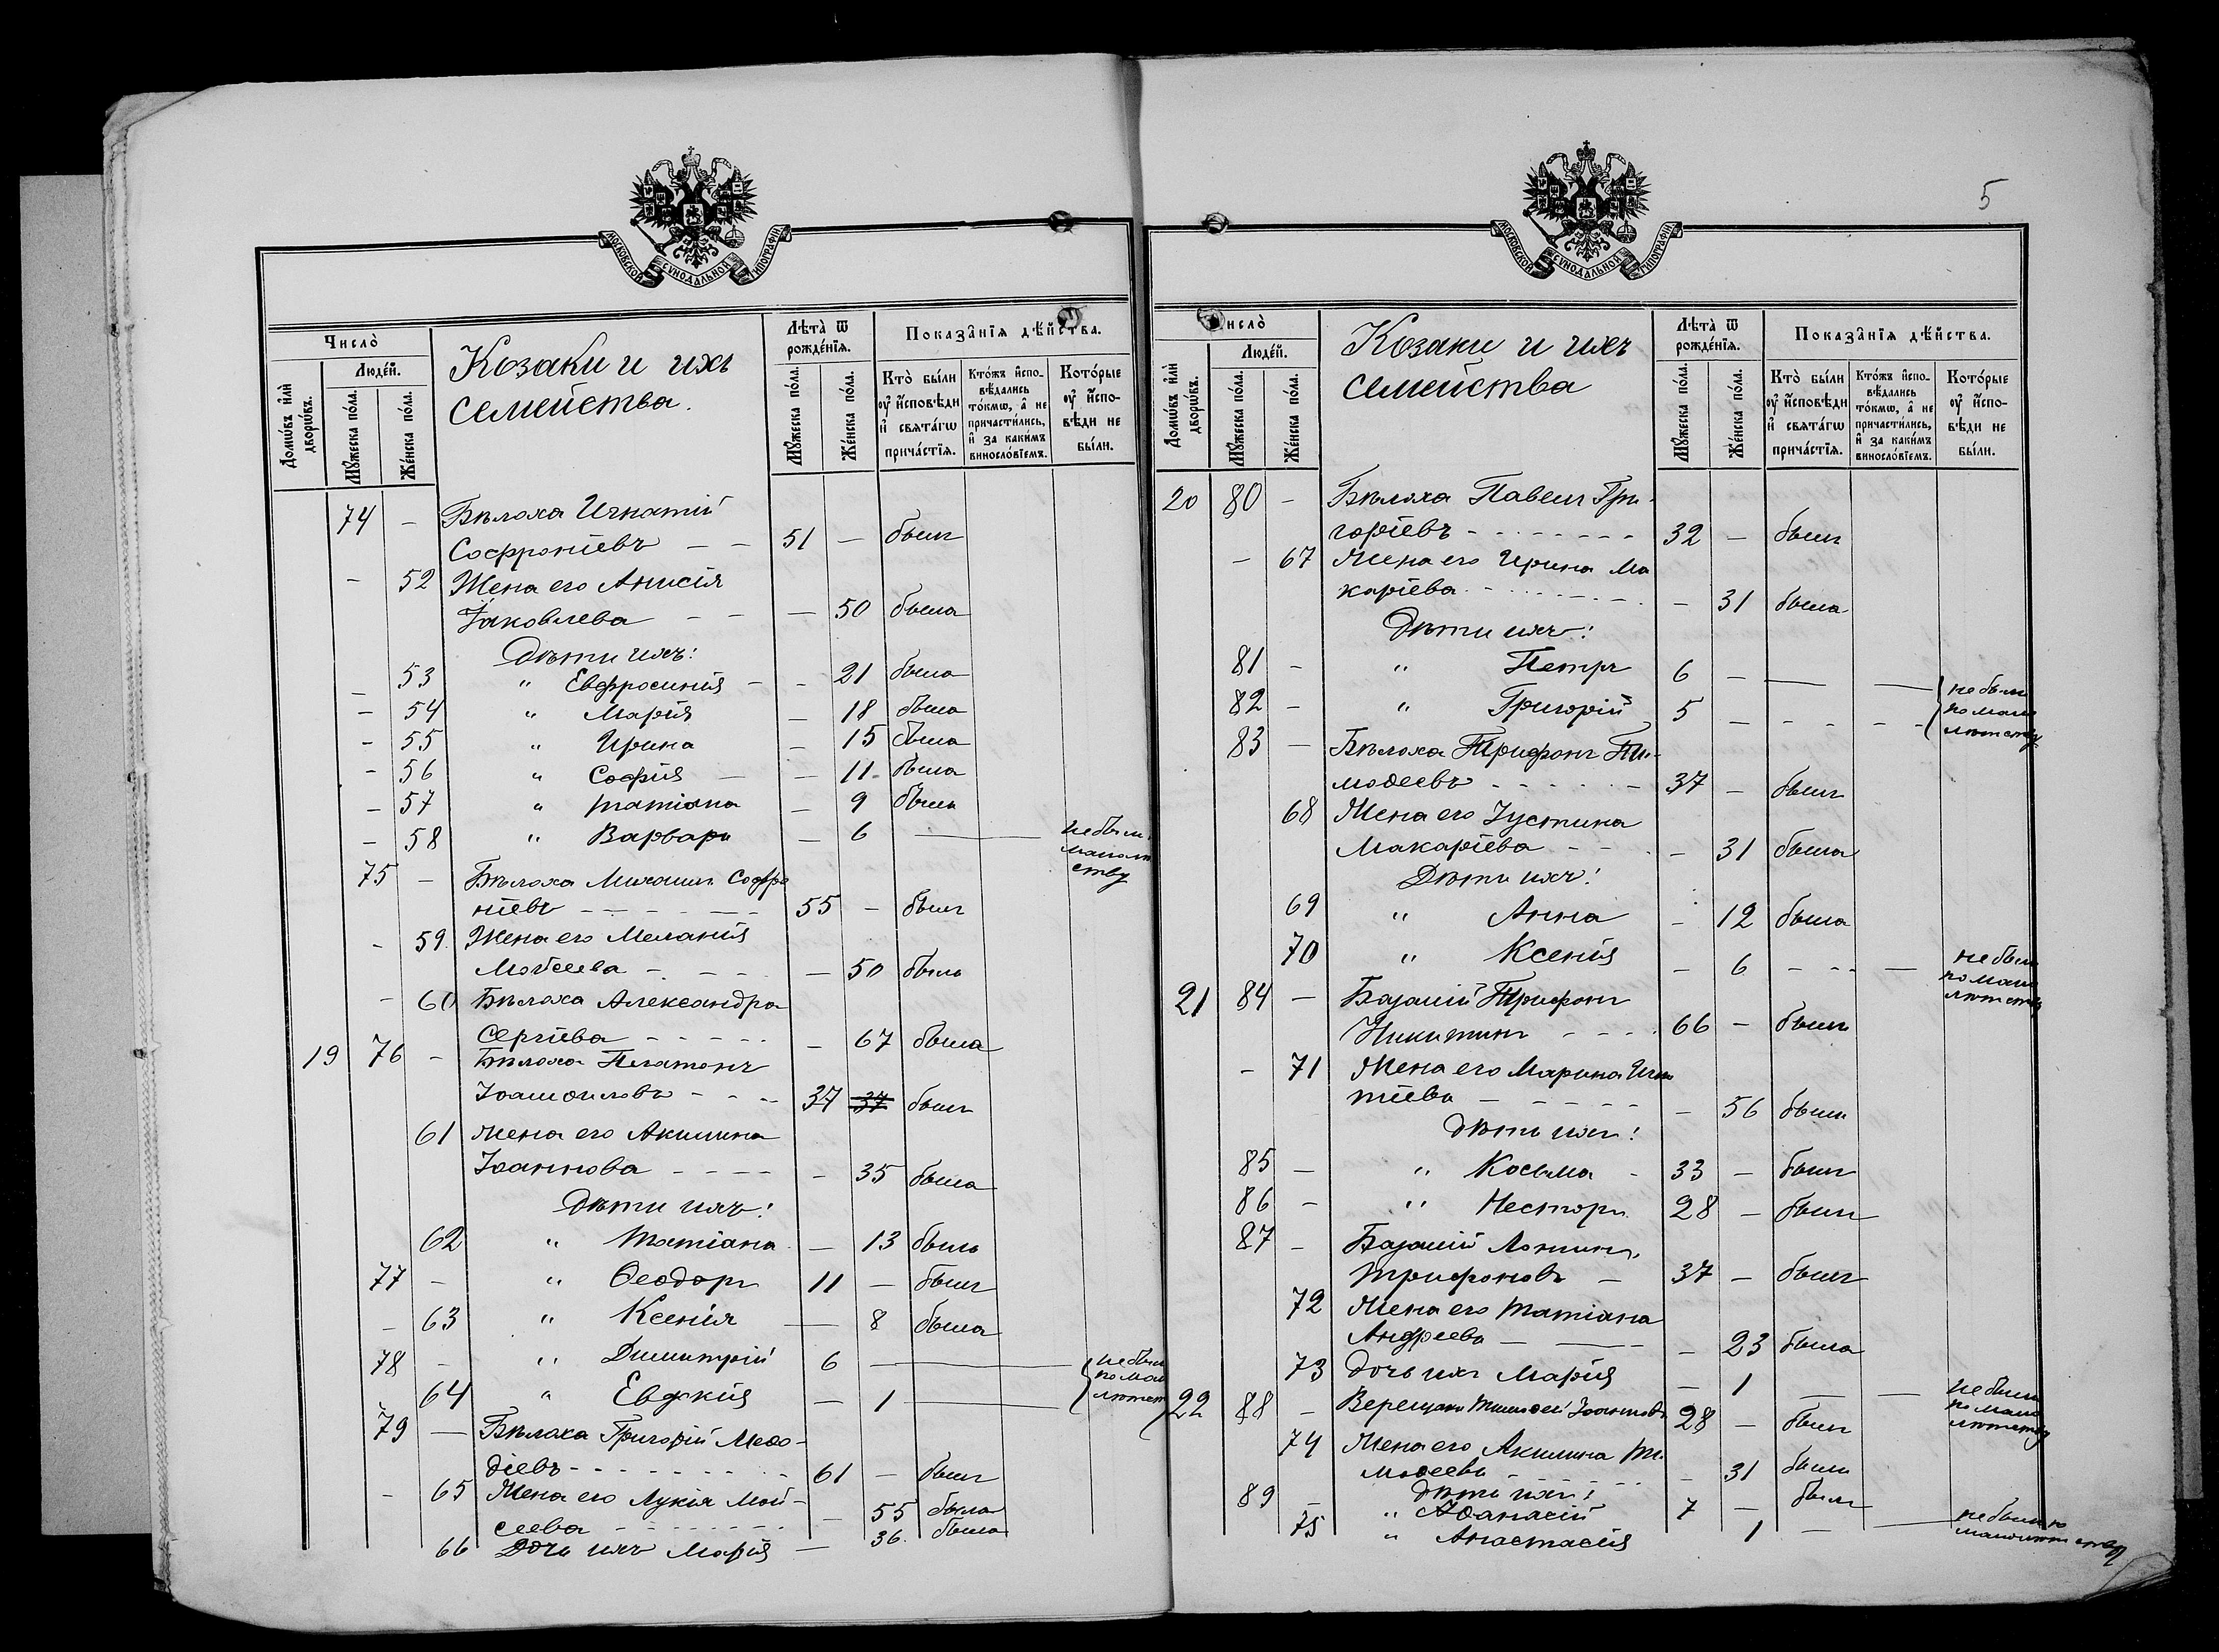 МОСКОВСКОЙ СѴНОДАЛЬНОЙ ТИПОГРАФІИ
Число̀
Домѡ́въ и҆лѝ дворѡ́въ.
Люде́й.
Мꙋ́жеска по́ла.
Же́нска по́ла.
Козаки и ихъ
семейства.
Лѣта̀ ѿ рожде́нїѧ.
Мꙋ́жеска по́ла.
Же́нска по́ла.
Показа̂нїѧ дѣ́йства.
Кто̀ бы́ли ᲂу҆ и҆́сповѣди и҆ свѧта́гѡ прича́стїѧ.
Кто́жъ и҆спо-вѣ́дались то́кмѡ, а҆ не причасти́лись, и҆ за каки́мъ винословїемъ.
Кото́рые ᲂу҆ и҆́спо-вѣди не бы́ли.
74 - Бѣлоха Игнатій
Софроніевъ - - 51 - былъ
- 52 Жена его Анисія
Іаковлева - - - 50 была
Дѣти ихъ:
- 53 " Евфросинія - - 21 была
- 54 " Марія - 18 была
- 55 " Ирина - 15 была
- 56 " Софія - - 11 была
- 57 " Татіана - 9 была
- 58 " Варвара - 6 — не была
малолѣт
ству
75 - Бѣлоха Михаилъ Софро
ніевъ - - - - 55 - былъ
- 59 Жена его Меланія
Моѵсеева - - - - 50 была
- 60 Бѣлоха Александра
Сергіева - - - - - 67 была
19 76 - Бѣлоха Платонъ
- - - 37 37 былъ
61 Жена его Акилина
Іоаннова - - - - - 35 была
Дѣти ихъ:
62 " Татіана - 13 была
77 - " Ѳеодоръ 11 - былъ
- 63 " Ксенія - 8 была
78 - " Димитрій 6 - — не были
по мало
лѣтст
64 " Евдокія - 1 —
79 - Бѣлоха Григорій Меѳо-
діевъ - - - - - - 61 - былъ
- 65 Жена его Лукія Мой-
сеева - - - - - - 55 была
66 Дочь ихъ Марія - 36 была
5
МОСКОВСКОЙ СѴНОДАЛЬНОЙ ТИПОГРАФІИ
Число̀
Домѡ́въ и҆лѝ дворѡ́въ.
Люде́й.
Мꙋ́жеска по́ла.
Же́нска по́ла.
Козаки и ихъ
семейства
Лѣта̀ ѿ рожде́нїѧ.
Мꙋ́жеска по́ла.
Же́нска по́ла.
Показа̂нїѧ дѣ́йства.
Кто̀ бы́ли ᲂу҆ и҆́сповѣди и҆ свѧта́гѡ прича́стїѧ.
Кто́жъ и҆спо-вѣ́дались то́кмѡ, а҆ не причасти́лись, и҆ за каки́мъ винословїемъ.
Кото́рые ᲂу҆ и҆́спо-вѣди не бы́ли.
20 80 - Бѣлоха Павелъ Гри-
горіевъ - - - - - - - 32 - былъ
- 67 Жена его Ирина Ма
каріева - - - - - - - 31 была
Дѣти ихъ:
81 - " Петръ 6 - — — не были
по мало
лѣтству
82 - " Григорій 5 - - - - -
83 - Бѣлоха Трифонъ Ти-
моѳеевъ - - - - - 37 - былъ
68 Жена его Іустина
Макаріева - - - - 31 была
Дѣти ихъ:
69 " Анна - 12 была
70 " Ксенія - 6 - - - — не была
по мало
лѣтству
21 84 - Базалій Трифонъ
Никитинъ - - - 66 - былъ
- 71 Жена его Марина Игна
тіева - - - - - - 56 была
Дѣти ихъ:
85 - " Косьма - 33 - былъ
86 - " Несторъ 28 - былъ
87 - Базалій Логинъ
Трифоновъ - 37 - былъ
72 Жена его Татіана
Андреева - — - 23 была
73 Дочь ихъ Марія - 1 — — не была
по мало
лѣтству
22 88 - Тимоѳей Іоанновъ 28 - былъ
74 Жена его Акилина Ти
моѳеева - - - - 31 была
Дѣти ихъ:
89 - " Аѳанасій 7 - былъ
75 " Анастасія 1 - — не была по
малолѣтству